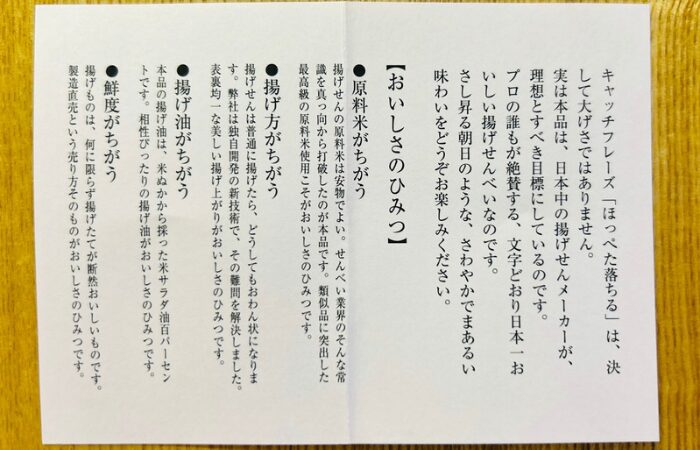 キャッチフレーズ「ほっぺた落ちる」は、決
して大げさではありません。
実は本品は、日本中の揚げせんメーカーが、
理想とすべき目標にしているのです。
プロの誰もが絶賛する、文字どおり日本一お
いしい揚げせんべいなのです。
さし昇る朝日のような、さわやかでまあるい
味わいをどうぞお楽しみください。
【おいしさのひみつ】
●原料米がちがう
揚げせんの原料米は安物でよい。せんべい業界のそんな常
識を真っ向から打破したのが本品です。類似品に突出した
最高級の原料米使用こそがおいしさのひみつです。
●揚げ方がちがう
揚げせんは普通に揚げたら、どうしてもおわん状になりま
す。弊社は独自開発の新技術で、その難問を解決しました。
表裏均一な美しい揚げ上がりがおいしさのひみつです。
●揚げ油がちがう
本品の揚げ油は、米ぬかから採った米サラダ油百パーセン
トです。相性ぴったりの揚げ油がおいしさのひみつです。
●鮮度がちがう
揚げものは、何に限らず揚げたてが断然おいしいものです。
製造直売という売り方そのものがおいしさのひみつです。